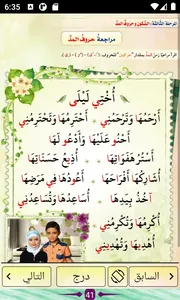 6:35
المرحلة الثالثة: السكون وحروف المد
مراجعة حروف المدّ
أُخْتِي لَيْلَى
أَرْحَمُهَا وَتَرْحَمُنِي أَحْتَرِمُهَا وَتَحْتَرِمُنِي
أَحْنُو عَلَيْهَا وَأَدْعُو لَهَا
أَسْتُرُ هَفَوَاتِهَا أُذِيعُ حَسَنَاتِهَا
أُشَارِكُهَا أَفْرَاحَهَا أَعُودُهَا فِي مَرَضِهَا
آخُذُ بِيَدِهَا
أُسَاعِدُهَا وَتُسَاعِدُنِي
أُكْرِمُهَا وَتُكْرِمُنِي
أُهْدِيهَا وَتُهْدِينِي
السابق
درج
التالي
41